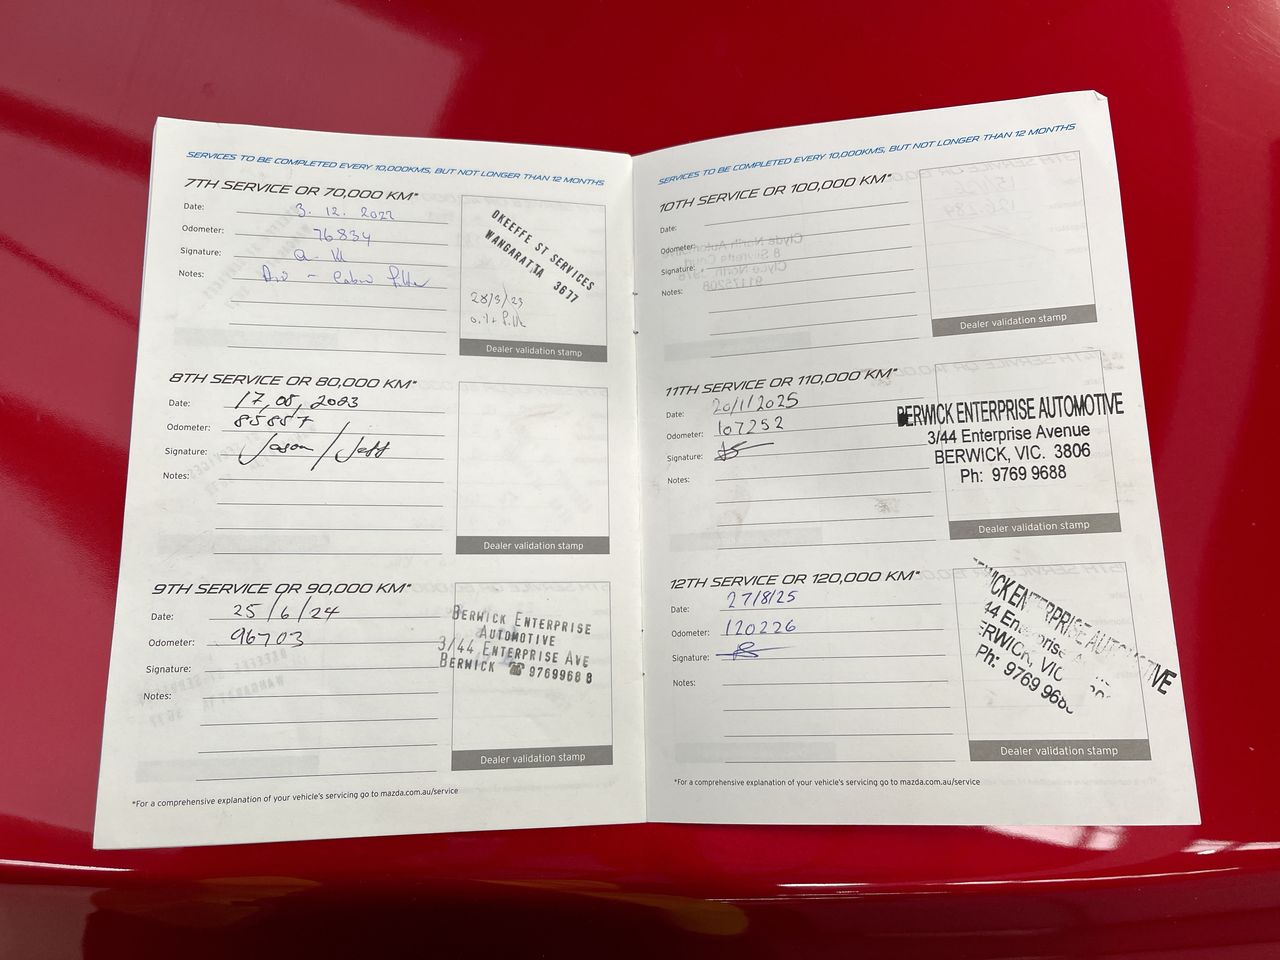 SERVICES TO BE COMPLETED EVERY 10,000KMS, BUT NOT LONGER THAN 12 MONTHS
7TH SERVICE OR 70,000 KM*
Date: 3. 12. 2022
Odometer: 76834
Signature:
Notes: Filter
OKEEFFE ST SERVICES
WANGARATTA 3677
28/3/23
Dealer validation stamp
8TH SERVICE OR 80,000 KM*
Date: 17,08,2003
Odometer: 85857
Signature: Jason / Jeff
Notes:
Dealer validation stamp
9TH SERVICE OR 90,000 KM*
Date: 25/6/24
Odometer: 96703
Signature:
Notes:
BERWICK ENTERPRISE
AUTOMOTIVE
3/44 ENTERPRISE AVE
BERWICK ☎ 97699688
Dealer validation stamp
*For a comprehensive explanation of your vehicle's servicing go to mazda.com.au/service
SERVICES TO BE COMPLETED EVERY 10,000KMS, BUT NOT LONGER THAN 12 MONTHS
10TH SERVICE OR 100,000 KM*
Date:
Odometer:
Signature:
Notes:
Dealer validation stamp
11TH SERVICE OR 110,000 KM*
Date: 20/1/2025
Odometer: 107252
Signature:
Notes:
BERWICK ENTERPRISE AUTOMOTIVE
3/44 Enterprise Avenue
BERWICK, VIC. 3806
Ph: 9769 9688
Dealer validation stamp
12TH SERVICE OR 120,000 KM*
Date: 27/8/25
Odometer: 120226
Signature:
Notes:
WICK ENTERPRISE AUTOMOTIVE
44 Enterprise A
ERWICK, VIC
Ph: 9769 968
Dealer validation stamp
*For a comprehensive explanation of your vehicle's servicing go to mazda.com.au/service